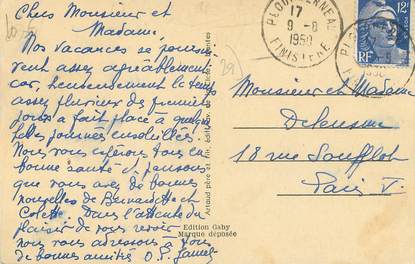 Chers Monsieur et
Madame,
Nos vacances se poursui-
vent assez agréablement
car, heureusement le temps
assez pluvieux des premiers
jours a fait place à quelques
belles journées ensoleillées.
Nous vous espérons tous en
bonne santé et pensons
que vous avez de bonnes
nouvelles de Bernadette et
Colette. Dans l'attente du
plaisir de vous revoir
nous vous adressons à tous
de bonnes amitiés
Artaud père et fils édition
Edition Gaby
Marque déposée
PLOUGUERNEAU
17
9-8
1950
FINISTERE
12F
RF
Monsieur et Madame
18 rue Soufflot
Paris V.